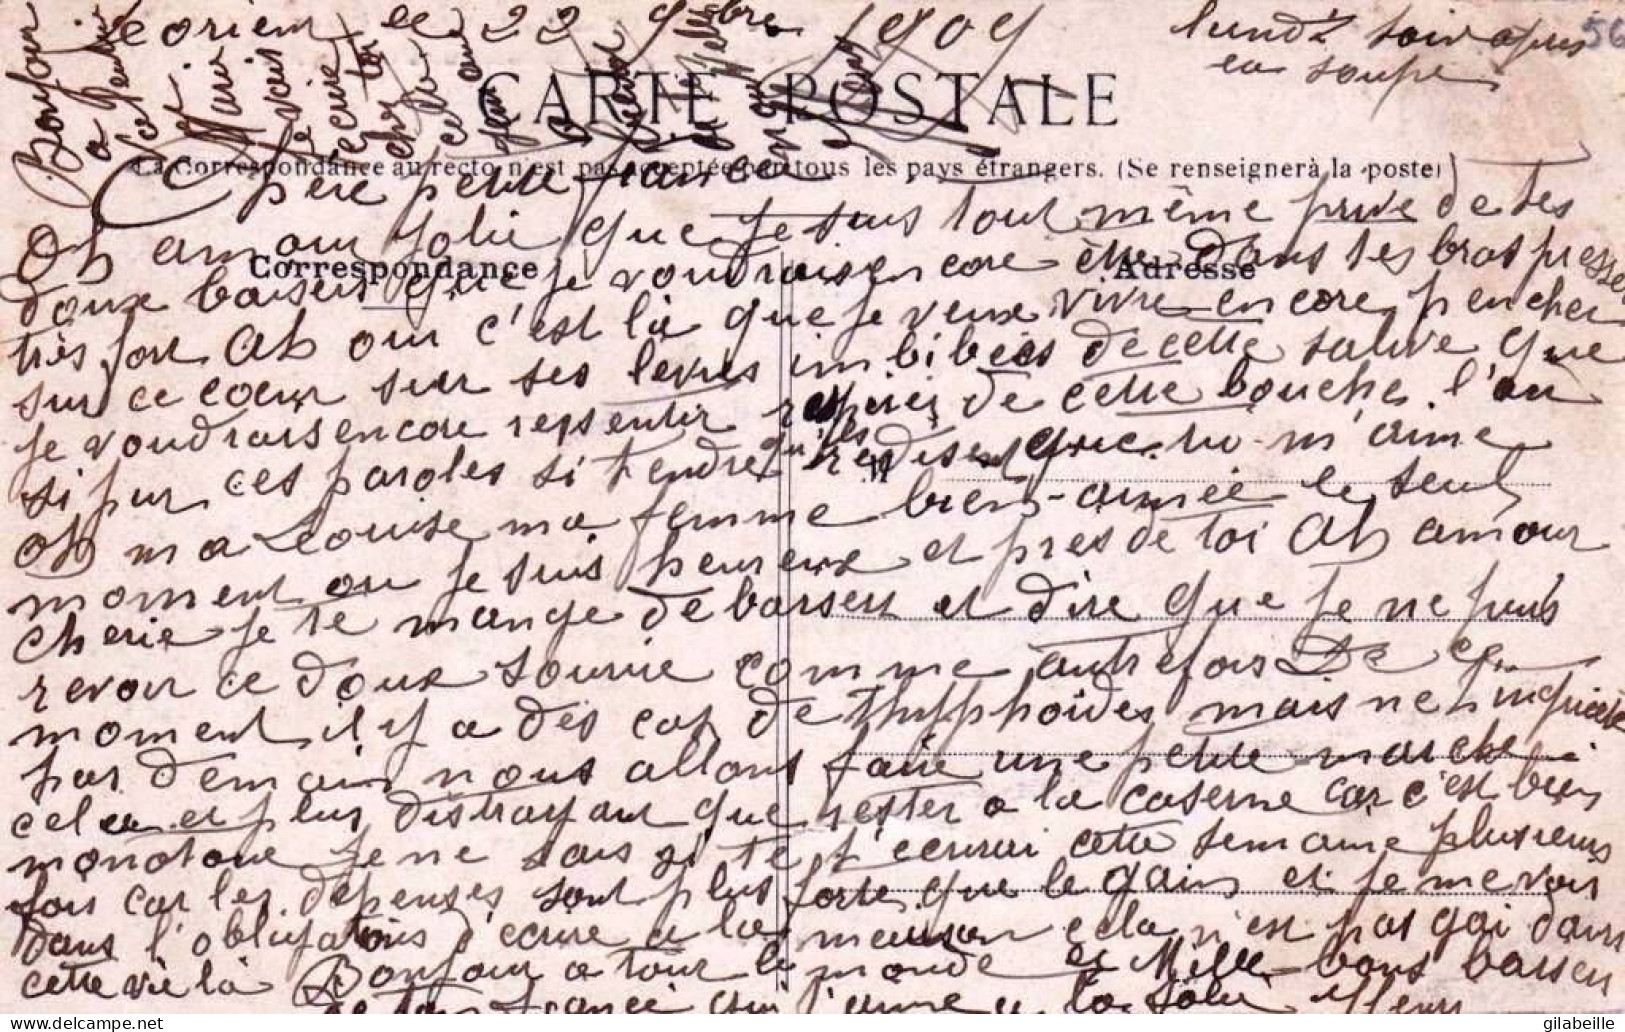 Lorient le 22 9bre 1909
lundi soir après
la soupe
56
Bonjour
a
Marie
Je vais
ecrire
CARTE POSTALE
La Correspondance au recto n'est pas acceptée par tous les pays étrangers. (Se renseigner à la poste)
Chère petite fiancée
Oh amour jolie que je suis tout même privé de tes
Correspondance
Adresse
doux baisers que je voudrais encore être dans tes bras presse
très fort Ah oui c'est là que je veux vivre encore pencher
sur ce cœur sur tes levres imbibées de cette salive que
je voudrais encore ressentir respirer de cette bouche l'air
si pur ces paroles si tendre qui redisent que tu m'aime
M
oh ma Louise ma femme bien-aimée le seul
moment ou je suis heureux et près de toi Ah amour
cherie je te mange de baisers et dire que je ne puis
revoir ce doux sourire comme autrefois De ce
moment il y a des cas de thyphoïdes mais ne t'inquiète
pas demain nous allons faire une petite marche
cela et plus distrayant que rester a la caserne car c'est bien
monotone Je ne sais si je t'écrirai cette semaine plusieurs
fois car les dépenses sont plus forte que le gain et je me vois
dans l'obligations d'ecrire a la maison cela n'est pas gai dans
cette vie là Bonjour a tout le monde et Mille bons baisers
de ton fiancé qui t'aime a la folie
gilabeille